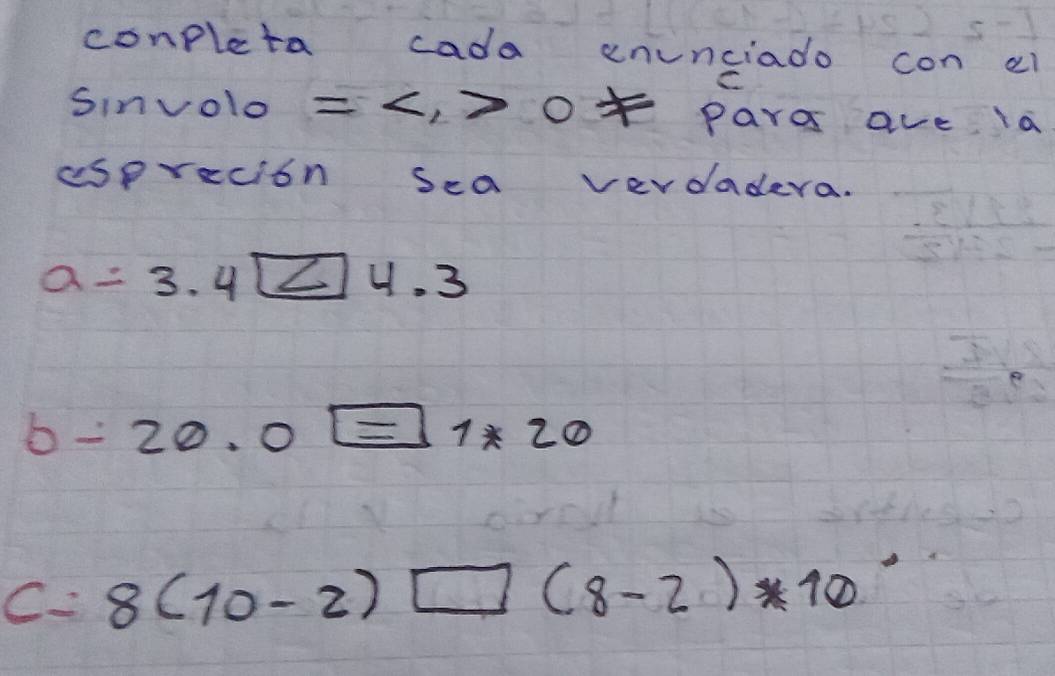 conpleta cada enunciado con el
sinvolo = <, > o ≠ para que la
espreción sea verdadera.
a- 3.4 < 4.3
b- 20.0 = 1* 20
C- 8(10-2) (8-2)*10